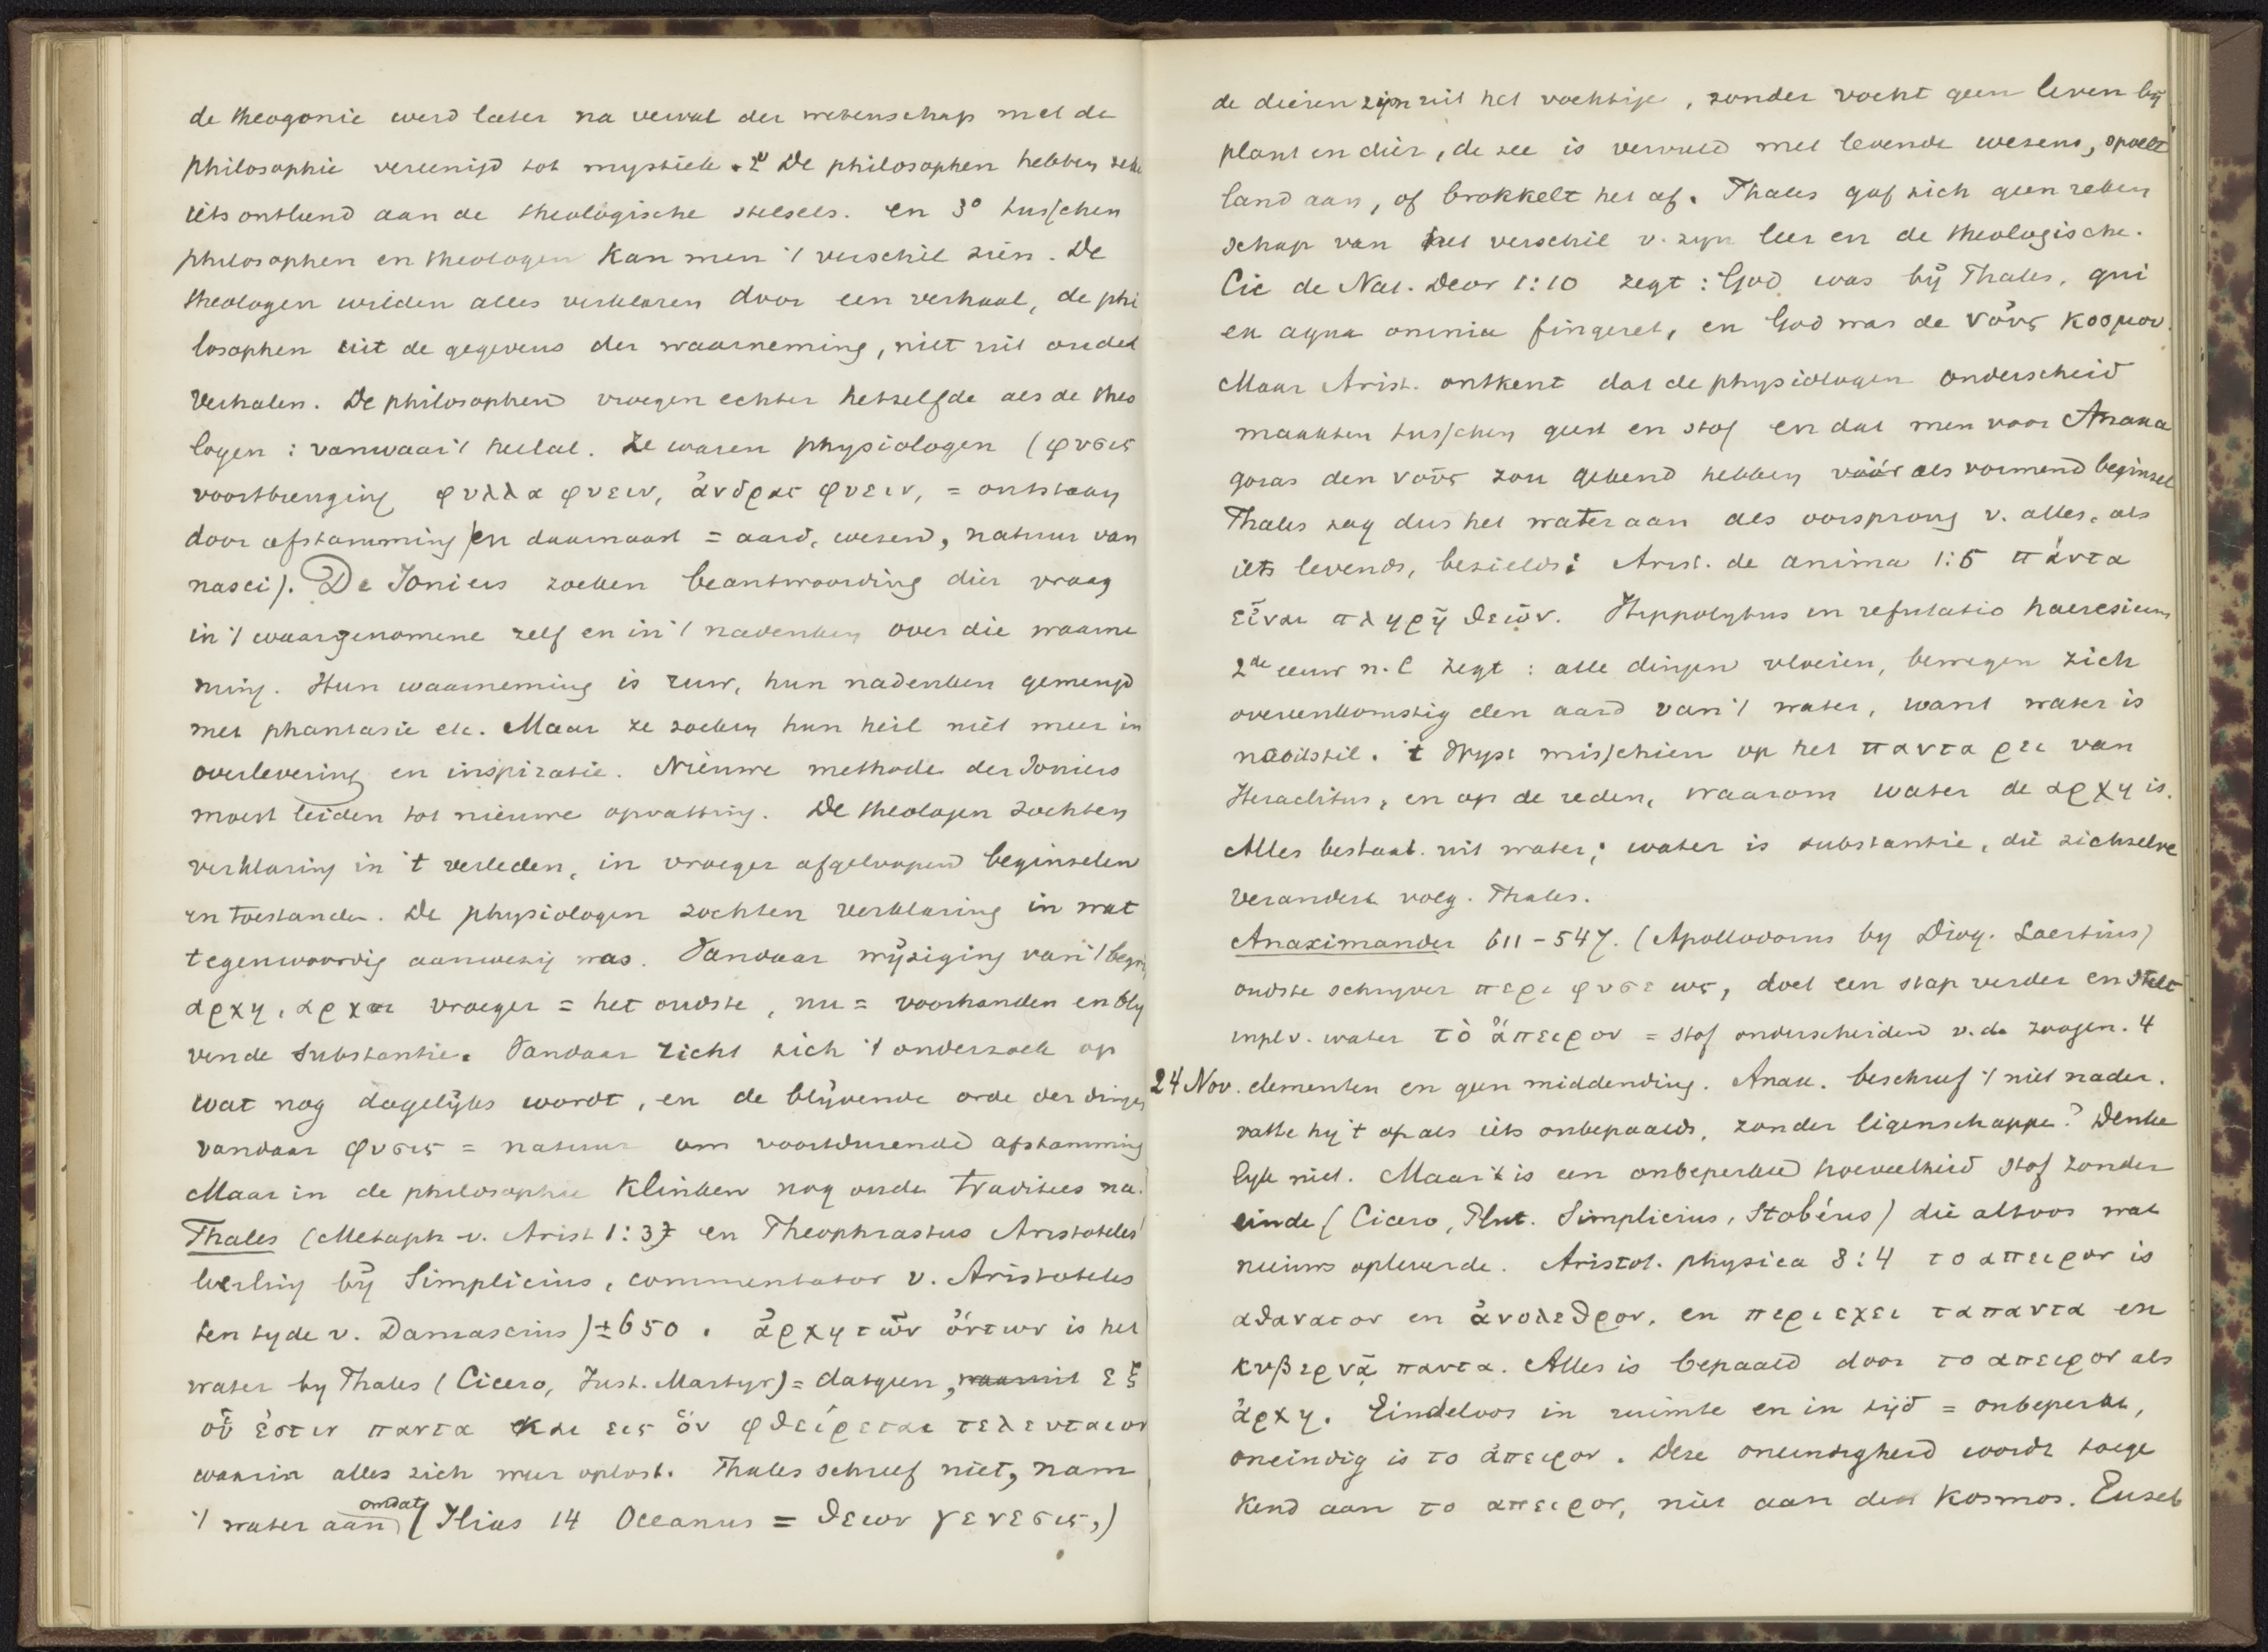 de theogonie werd later na verval der wetenschap met de
philosophie vereenigd tot mystiek. 2° De philosophen hebben
iets ontleend aan de theologische stelsels. en 3° tusschen
philosophen en theologen kan men 't verschil zien. De
theologen wilden alles verklaren door een verhaal, de phi
losophen uit de gegevens der waarneming, niet uit oude
verhalen. De philosophen vroegen echter hetzelfde als de theo
logen: vanwaar 't heelal. Ze waren physiologen (φυσις
voortbrenging φυλλα φυειν, ἀνδρας φυειν, = ontstaan
door afstamming en daarnaast = aard, wezen, natuur van
nasci). De Joniers zoeken beantwoording dier vraag
in 't waargenomene zelf en in 't nadenken over die waarne
ming. Hun waarneming is ruw, hun nadenken gemengd
met phantasie etc. Maar ze zoeken hun heil niet meer in
overlevering en inspiratie. Nieuwe methode der Joniers
moest leiden tot nieuwe opvatting. De theologen zochten
verklaring in 't verleden, in vroeger afgeloopen beginselen
en toestanden. De physiologen zochten verklaring in wat
tegenwoordig aanwezig was. Vandaar wijziging van 't begrip
αρχη, αρχαι vroeger = het oudste, nu = voorhanden en bly
vende substantie. Vandaar richt zich 't onderzoek op
wat nog dagelijks wordt, en de blijvende orde der dingen
vandaar φυσις = natuur om voortdurende afstamming
Maar in de philosophie klinken nog oude tradities na.
Thales (Metaph v. Arist 1:3) en Theophrastus Aristoteles'
leerling bij Simplicius, commentator v. Aristoteles
ten tyde v. Damascius) ± 650. ἀρχη τῶν ὄντων is het
water by Thales (Cicero, Just. Martyr) = datgeen, waaruit εξ
οὗ ἐστιν παντα και εις ὃν φθείρεται τελευταιον
waarin alles zich weer oplost. Thales schreef niet, nam
't water aan, omdat (Ilias 14 Oceanus = θεων γενεσις,)
de dieren zijn uit het vochtige, zonder vocht geen leven bij
plant en dier, de zee is vervuld met levende wezens, spoelt
land aan, of brokkelt het af. Thales gaf zich geen reken
schap van het verschil v. zyn leer en de theologische.
Cic de Nat. Deor 1:10 zegt: God was bij Thales, qui
ex aqua omnia fingeret, en God was de νοῦς κοσμου.
Maar Arist. ontkent dat de physiologen onderscheid
maakten tusschen geest en stof en dat men voor Anaxa
goras den νοῦς zou gekend hebben vóór als vormend beginsel
Thales zag dus het water aan als oorsprong v. alles, als
iets levends, bezields: Arist. de anima 1:5 πάντα
εἶναι πληρῆ θεῶν. Hippolytus in refutatio haeresium
2de eeuw n. C zegt: alle dingen vloeien, bewegen zich
overeenkomstig den aard van 't water, want water is
nooit stil. 't Wyst misschien op het παντα ρει van
Heraclitus, en op de reden, waarom water de αρχη is.
Alles bestaat uit water; water is substantie, die zichzelve
verandert volg. Thales.
Anaximander 611-547. (Apollodorus by Diog. Laertius)
oudste schryver περι φυσεως, doet een stap verder en stelt
in pl. v. water τὸ ἄπειρον = stof onderscheiden v. de zoogen. 4
24 Nov. elementen en geen middending. Anax. beschreef 't niet nader.
vatte hy 't op als iets onbepaalds, zonder eigenschappen? Denke
lyk niet. Maar 't is een onbeperkte hoeveelheid stof zonder
einde (Cicero, Plut. Simplicius, Stobéus) die altoos wat
nieuws opleverde. Aristot. physica 3:4 το απειρον is
αθανατον en ἀνολεθρον, en περιεχει ταπαντα en
κυβερνᾷ παντα. Alles is bepaald door το απειρον als
ἀρχη. Eindeloos in ruimte en in tijd = onbeperkt,
oneindig is το ἀπειρον. Deze oneindigheid wordt toege
kend aan το απειρον, niet aan den kosmos. Euseb